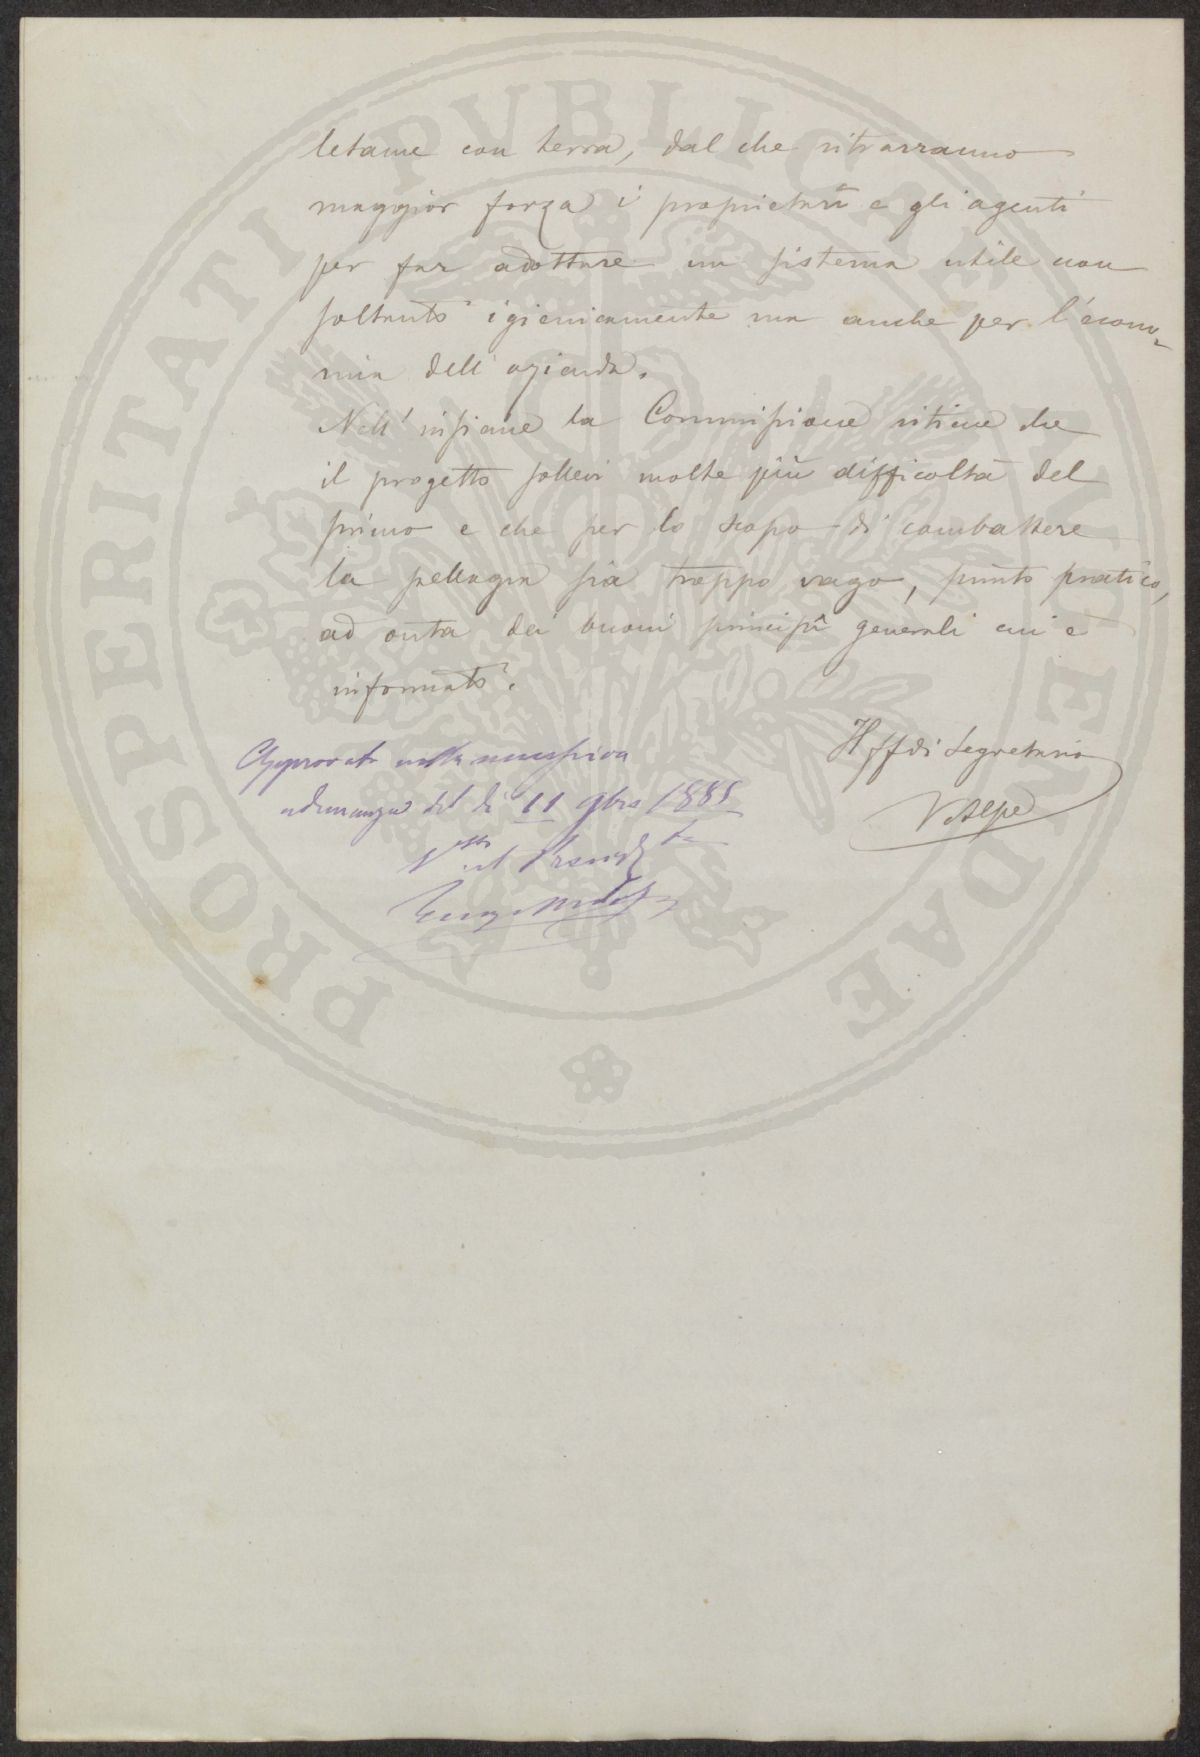 letame con terra, dal che ritrarranno
maggior forza i proprietarii e gli agenti
per far adottare un sistema utile non
soltanto igienicamente ma anche per l'econo-
mia dell'azienda.
Nell'insieme la Commissione ritiene che
il progetto sollevi molte più difficoltà del
primo e che per lo scopo di combattere
la pellagra sia troppo vago, punto pratico,
ad onta dei buoni principii generali cui è
informato.
Il ff di Segretario
V Alpe
Approvato nella successiva
adunanza del dì 11 9bre 1885
PROSPERITATI PVBLICAE AVGENDAE